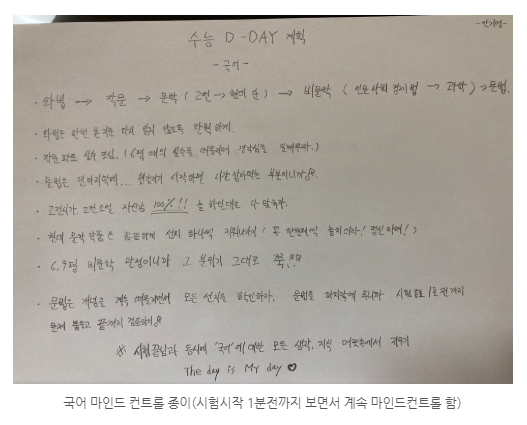 수능 D-DAY 계획
- 국어 -
· 화법 → 작문 → 문학 (고전 → 현대 순) → 비문학 (인문 사회 경제 법 → 과학) → 문법.
· 화법은 한번 본 지문 다시 읽지 않도록 만점 하게.
· 작문 파트 실수 조심. (6평 때의 실수를 떠올리며 경각심을 일깨우자.)
· 문법은 맨마지막에... 헷갈리기 시작하면 시간 잡아먹는 부분이니까
· 고전시가, 고전소설 자신감 100%!! 늘 하던대로 다 맞추자.
· 현대 문학 작품은 꼼꼼하게 선지 하나씩 지워내기 (꼭 한문제씩 놓치더라! 정신차려!)
· 6, 9평 비문학 만점이니까 그 분위기 그대로 쭉!!
· 문법은 개념을 계속 떠올리면서 모든 선지를 확인하자. 문법을 마지막에 푸니까 시험종료 1분전까지
문제 붙들고 끝까지 검토하기
※ 시험끝남과 동시에 '국어'에 대한 모든 생각, 지식 머릿속에서 지우기
The day is My day ♡
국어 마인드 컨트롤 종이(시험시작 1분전까지 보면서 계속 마인드컨트롤 함)